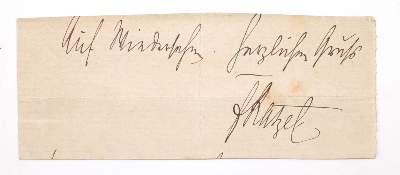 Auf Wiedersehn. Herzlichen Gruß
FRatzel